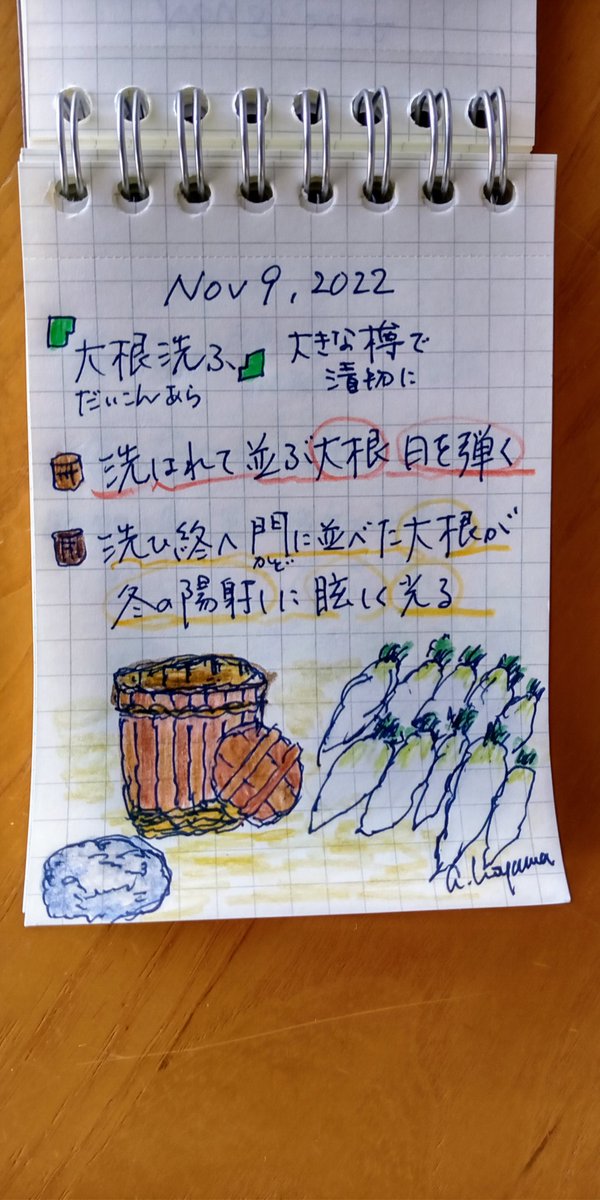 Nov 9, 2022
大根洗ふ
だいこんあら
大きな樽で
漬物に
洗はれて並ぶ大根目を弾く
洗ひ終へ門に並べた大根が
かど
冬の陽射しに眩しく光る